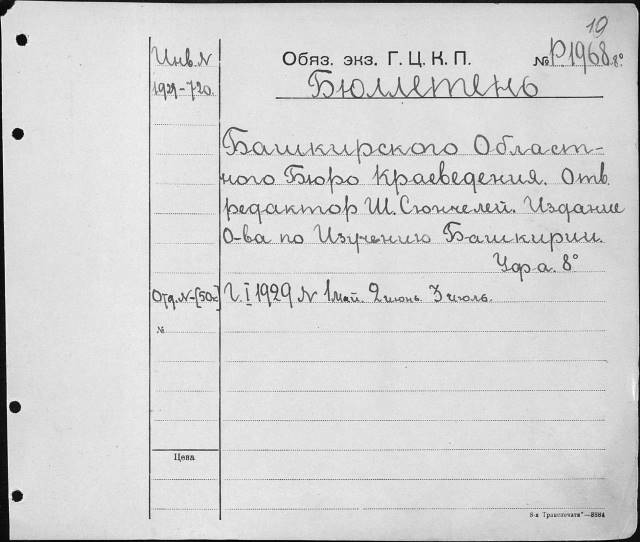 19
Инв. N
Обяз. экз. Г. Ц. К. П.
№ Р1968 8°
1929-720.
Бюллетень
Башкирского Област-
ного Бюро Краеведения. Отв.
редактор Ш. Сюнчелей. Издание
О-ва по Изучению Башкирии.
Уфа. 8°
Отд. N-[50к]
Г. I 1929 N 1 май. 2 июнь. 3 июль.
№
Цена
8-я Транспечати"—8884